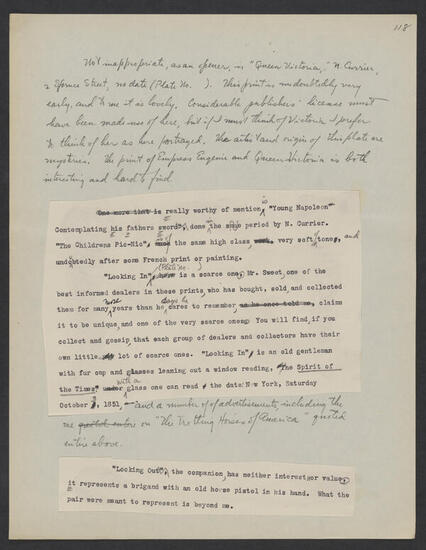 118
Not inappropriate, as an opener, is "Queen Victoria," N. Currier,
2 Spruce Street, no date (Plate No. ). This print is undoubtedly very
early, and to me it is lovely. Considerable publishers' license must
have been made use of here, but if I must think of Victoria I prefer
to think of her as here portrayed. The artist and origin of this plate are
mysteries. The print of Empress Eugenie and Queen Victoria is both
interesting and hard to find.
One more that is really worthy of mention, is "Young Napoleon"
Contemplating his fathers sword", done the same period by N. Currier.
"The Childrens Pic-Nic", the same high class work, very soft tones, and
undoubtedly after some French print or painting.
(Plate No. )
"Looking In", is a scarce one, Mr. Sweet, one of the
best informed dealers in these prints, who has bought, sold, and collected
them for many more years than he cares to remember, as he once told me, claims
it to be unique, and one of the very scarce ones. You will find, if you
collect and gossip, that each group of dealers and collectors have their
own little lot of scarce ones. "Looking In", is an old gentleman
with fur cap and glasses leaning out a window reading. The Spirit of
the Times", under with a glass one can read the date New York, Saturday
October , 1851, and a number of advertisements, including the
one quoted entire on "The Trotting Horses of America" quoted
entire above.
"Looking Out", the companion, has neither interest or value,
it represents a brigand with an old horse pistol in his hand. What the
pair were meant to represent is beyond me.